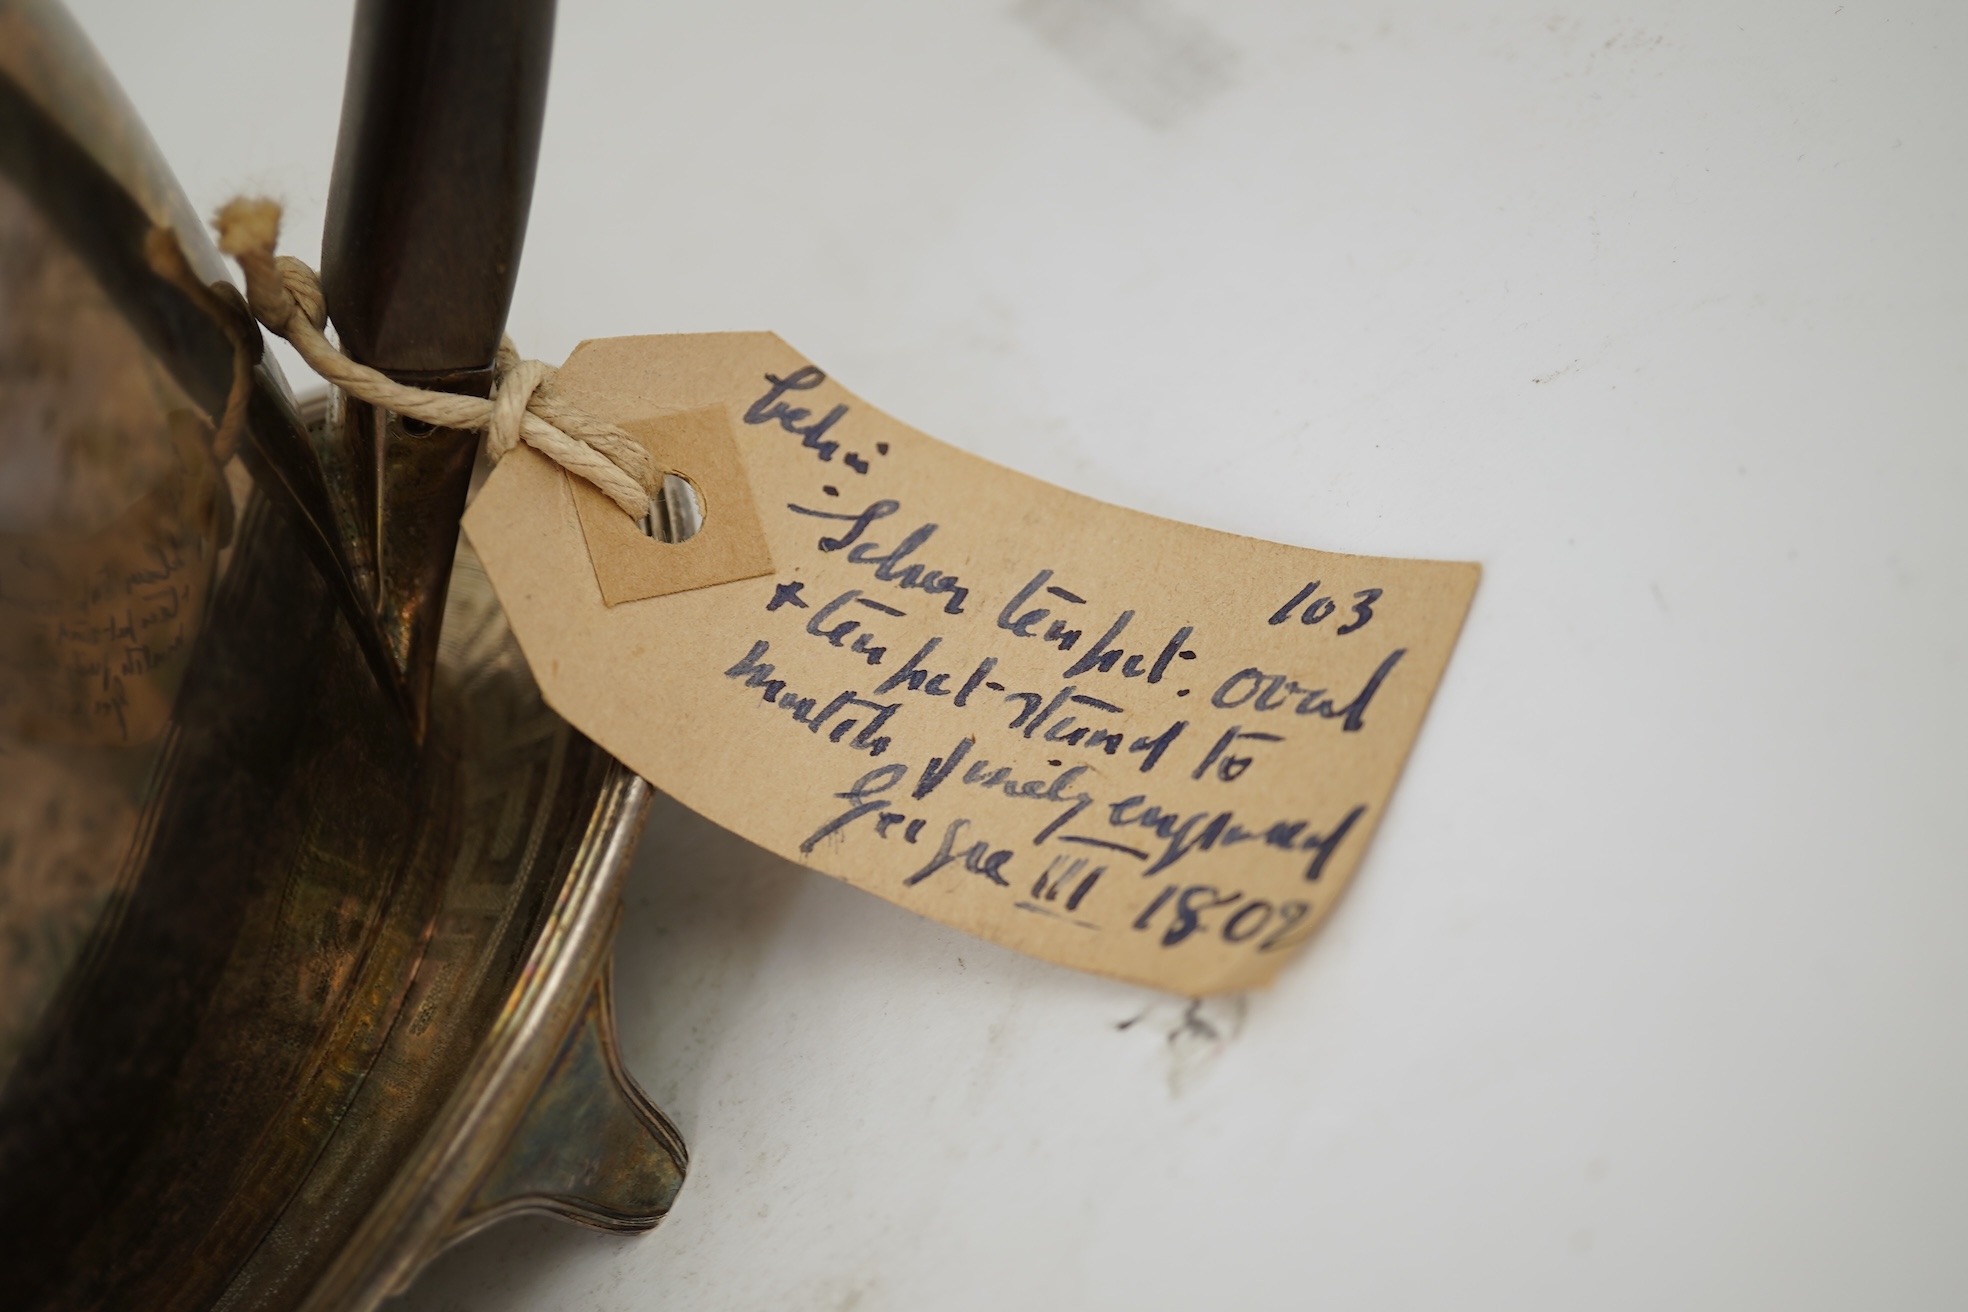 103
Silver teapot. Oval
+ teapot-stand to
match finely engraved
George III 1802